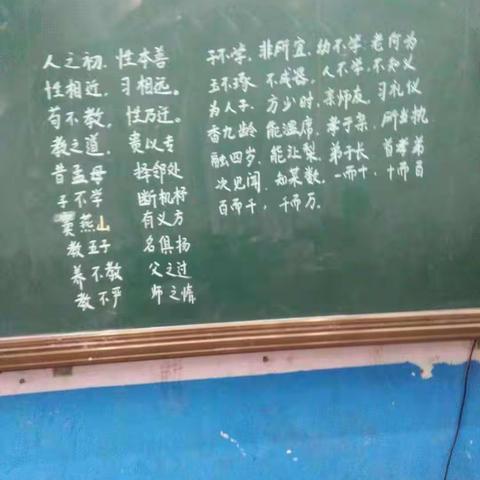 人之初, 性本善
性相近, 习相远。
苟不教, 性乃迁。
教之道, 贵以专
昔孟母 择邻处
子不学 断机杼
窦燕山 有义方
教五子 名俱扬
养不教 父之过
教不严 师之情
子不学, 非所宜, 幼不学, 老何为
玉不琢 不成器, 人不学, 不知义
为人子, 方少时, 亲师友, 习礼仪
香九龄 能温席, 孝于亲, 所当执
融四岁, 能让梨, 弟于长 首孝弟
次见闻, 知某数, 一而十, 十而百
百而千, 千而万.